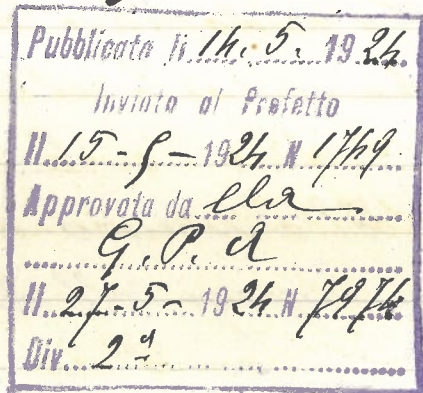 Pubblicata li 14. 5. 1924
Inviata al Prefetto
Il 15-5-1924 N 1749
Approvata da lla
G. P. A
Il 27-5-1924 N 7974
Div. 2ª